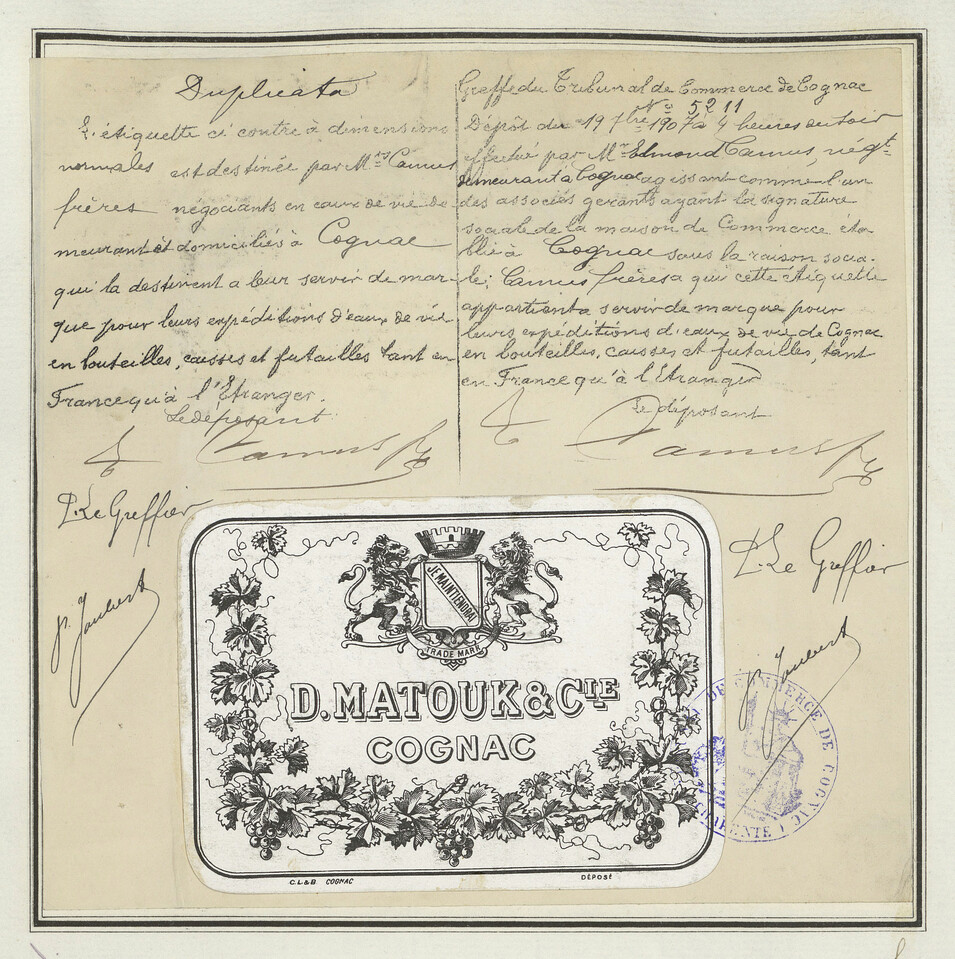 Duplicata
L'étiquette ci contre à dimensions
normales est destinée par Mrs Camus
frères négociants en eaux de vie de-
meurant et domiciliés à Cognac
qui la destinent a leur servir de mar-
que pour leurs expéditions d'eaux de vie
en bouteilles, caisses et futailles tant en
France qu'à l'Etranger.
Le déposant
Camus
P. Le Greffier
P. Joubert
Greffe du Tribunal de Commerce de Cognac
No 5211
Dépôt du 19 7bre 1907 à 4 heures du soir
effectué par Mr Edmond Camus, négt
demeurant à Cognac agissant comme l'un
des associés gérants ayant la signature
sociale de la maison de Commerce éta-
blie à Cognac sous la raison socia-
le; Camus frères a qui cette étiquette
appartient a servir de marque pour
leurs expéditions d'eaux de vie de Cognac
en bouteilles, caisses et futailles, tant
en France qu'à l'Etranger
Le déposant
Camus
P. Le Greffier
P. Joubert
JE MAINTIENDRAI
TRADE MARK
D. MATOUK & CIE
COGNAC
C.L&B COGNAC
DÉPOSÉ
DE COMMERCE DE COGNAC
CHARENTE